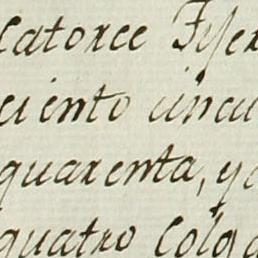 catorce
ciento cincu
quarenta, y
quatro Colga